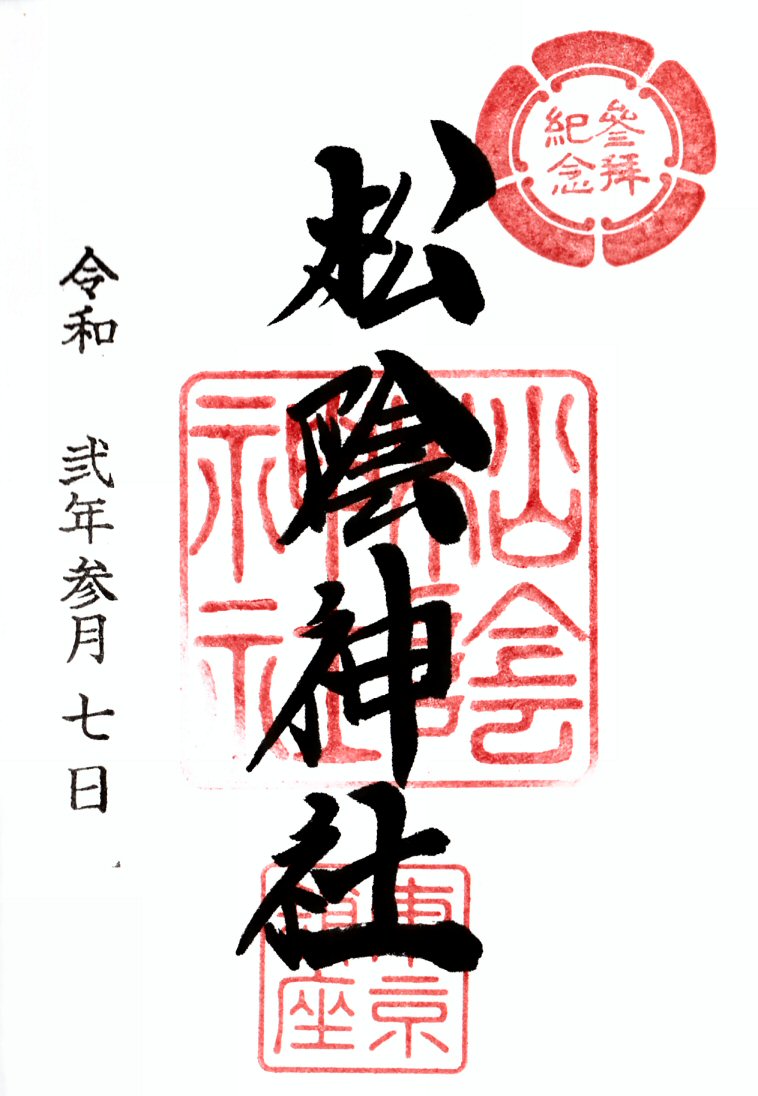 參拝
紀念
松陰神社
松陰
神社
東京
鎮座
令和 弐年参月七日